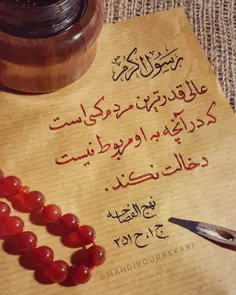 رسول اکرم
عالی قدرترین مردم کسی است
که در آنچه به او مربوط نیست
دخالت نکند.
نهج الفصاحه
ج ۱، ح ۲۵۱
@MAHDIPOURASKARI